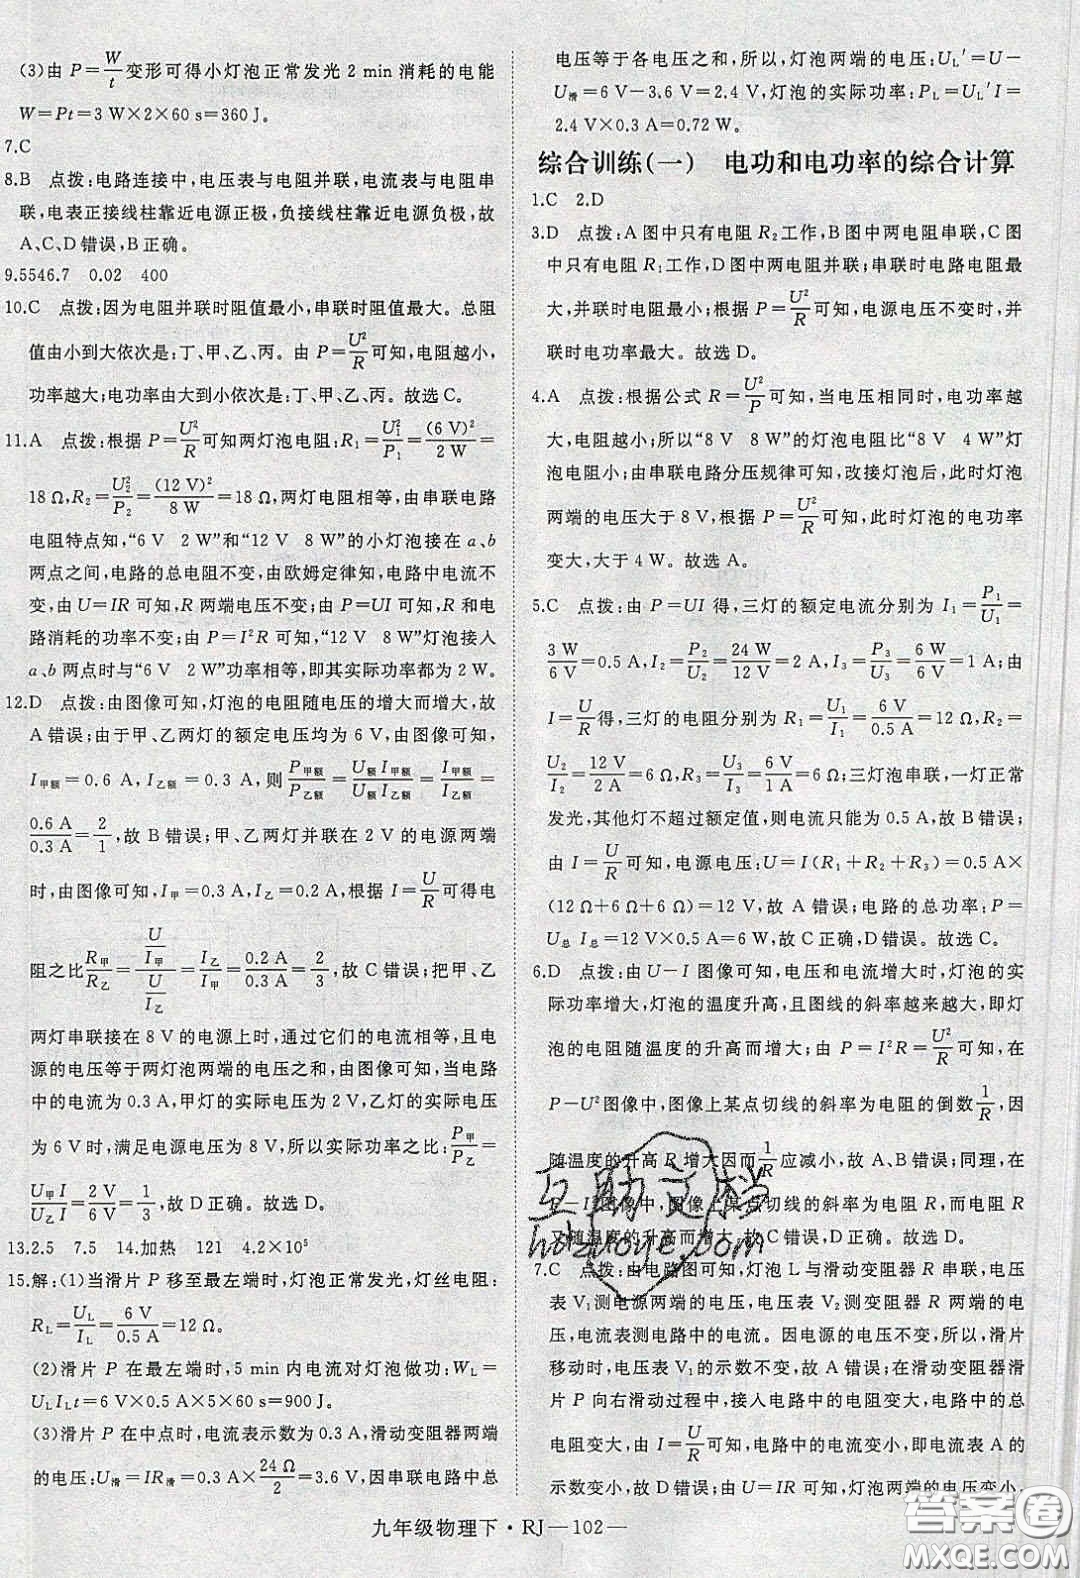 (3)由 P=W/t变形可得小灯泡正常发光 2 min 消耗的电能
W=Pt=3 W×2×60 s=360 J。
7.C
8.B 点拨:电路连接中,电压表与电阻并联,电流表与电阻串
联,电表正接线柱靠近电源正极,负接线柱靠近电源负极,故
A、C、D 错误,B 正确。
9.5546.7 0.02 400
10.C 点拨:因为电阻并联时阻值最小,串联时阻值最大。总阻
值由小到大依次是:丁、甲、乙、丙。由 P=U²/R可知,电阻越小,
功率越大;电功率由大到小依次是:丁、甲、乙、丙。故选 C。
11.A 点拨:根据 P=U²/R可知两灯泡电阻:R₁=U₁²/P₁=(6 V)²/2 W=
18 Ω,R₂=U₂²/P₂=(12 V)²/8 W=18 Ω,两灯电阻相等,由串联电路
电阻特点知,“6 V 2 W”和“12 V 8 W”的小灯泡接在 a、b
两点之间,电路的总电阻不变,由欧姆定律知,电路中电流不
变,由 U=IR 可知,R 两端电压不变;由 P=UI 可知,R 和电
路消耗的功率不变;由 P=I²R 可知,“12 V 8 W”灯泡接入
a、b 两点时与“6 V 2 W”功率相等,即其实际功率都为 2 W。
12.D 点拨:由图像可知,灯泡的电阻随电压的增大而增大,故
A 错误;由于甲、乙两灯的额定电压均为 6 V,由图像可知,
I甲额=0.6 A,I乙额=0.3 A,则P甲额/P乙额=U额I甲额/U额I乙额=I甲额/I乙额=
0.6 A/0.3 A=2/1,故 B 错误;甲、乙两灯并联在 2 V 的电源两端
时,由图像可知,I甲=0.3 A,I乙=0.2 A,根据 I=U/R可得电
阻之比R甲/R乙=(U/I甲)/(U/I乙)=I乙/I甲=0.2 A/0.3 A=2/3,故 C 错误;把甲、乙
两灯串联接在 8 V 的电源上时,通过它们的电流相等,且电
源的电压等于两灯泡两端的电压之和,由图像可知,当电路
中的电流为 0.3 A,甲灯的实际电压为 2 V,乙灯的实际电压
为 6 V 时,满足电源电压为 8 V,所以实际功率之比:P甲/P乙=
U甲I/U乙I=2 V/6 V=1/3,故 D 正确。故选 D。
13.2.5 7.5 14.加热 121 4.2×10⁵
15.解:(1)当滑片 P 移至最左端时,灯泡正常发光,灯丝电阻:
R_L=U_L/I_L=6 V/0.5 A=12 Ω。
(2)滑片 P 在最左端时,5 min 内电流对灯泡做功:W_L=
U_LI_Lt=6 V×0.5 A×5×60 s=900 J。
(3)滑片 P 在中点时,电流表示数为 0.3 A,滑动变阻器两端
的电压:U滑=IR滑=0.3 A×24 Ω/2=3.6 V,因串联电路中总
电压等于各电压之和,所以,灯泡两端的电压:U_L′=U-
U滑=6 V-3.6 V=2.4 V,灯泡的实际功率:P_L=U_L′I=
2.4 V×0.3 A=0.72 W。
综合训练(一) 电功和电功率的综合计算
1.C 2.D
3.D 点拨:A 图中只有电阻 R₂工作,B 图中两电阻串联,C 图
中只有电阻 R₁工作,D 图中两电阻并联;串联电路电阻最
大,并联时电阻最小;根据 P=U²/R可知,电源电压不变时,并
联时电功率最大。故选 D。
4.A 点拨:根据公式 R=U²/P可知,当电压相同时,电功率越
大,电阻越小;所以“8 V 8 W”的灯泡电阻比“8 V 4 W”灯
泡电阻小;由串联电路分压规律可知,改接灯泡后,此时灯泡
两端的电压大于 8 V,根据 P=U²/R可知,此时灯泡的电功率
变大,大于 4 W。故选 A。
5.C 点拨:由 P=UI 得,三灯的额定电流分别为 I₁=P₁/U₁=
3 W/6 V=0.5 A,I₂=P₂/U₂=24 W/12 V=2 A,I₃=P₃/U₃=6 W/6 V=1 A;由
I=U/R得,三灯的电阻分别为 R₁=U₁/I₁=6 V/0.5 A=12 Ω,R₂=
U₂/I₂=12 V/2 A=6 Ω,R₃=U₃/I₃=6 V/1 A=6 Ω;三灯泡串联,一灯正常
发光,其他灯不超过额定值,则电流只能为 0.5 A,故 B 错误;
由 I=U/R可知,电源电压:U=I(R₁+R₂+R₃)=0.5 A×
(12 Ω+6 Ω+6 Ω)=12 V,故 A 错误;电路的总功率:P=
U总 I总=12 V×0.5 A=6 W,故 C 正确,D 错误。故选 C。
6.D 点拨:由 U-I 图像可知,电压和电流增大时,灯泡的实
际功率增大,灯泡的温度升高,且图线的斜率越来越大,即灯
泡的电阻随温度的升高而增大;由 P=I²R=U²/R可知,在
P-U²图像中,图像上某点切线的斜率为电阻的倒数1/R,因
随温度的升高 R 增大因而1/R应减小,故 A、B 错误;同理,在
图像中,图像上某点切线的斜率为电阻 R,而电阻 R
又随温度的升高而增大,故 C 错误,D 正确。故选 D。
7.C 点拨:由电路图可知,灯泡 L 与滑动变阻器 R 串联,电压
表 V₁测电源两端的电压,电压表 V₂测变阻器 R 两端的电
压,电流表测电路中的电流。因电源的电压不变,所以,滑片
移动时,电压表 V₁的示数不变,故 A 错误;在滑动变阻器滑
片 P 向右滑动过程中,接入电路中的电阻变大,电路中的总
电阻变大,由 I=U/R可知,电路中的电流变小,即电流表 A 的
示数变小,故 B 错误;由 U=IR 可知,灯泡两端的电压变小,
九年级物理下·RJ—102—
互助文档
hdzuoye.com
答案圈
MXQE.COM